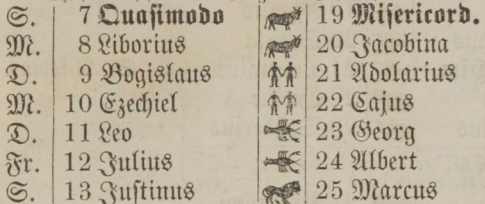 S. 7 Quasimodo 19 Misericord.
M. 8 Liborius 20 Jacobina
D. 9 Bogislaus 21 Adolarius
M. 10 Ezechiel 22 Cajus
D. 11 Leo 23 Georg
Fr. 12 Julius 24 Albert
S. 13 Justinus 25 Marcus